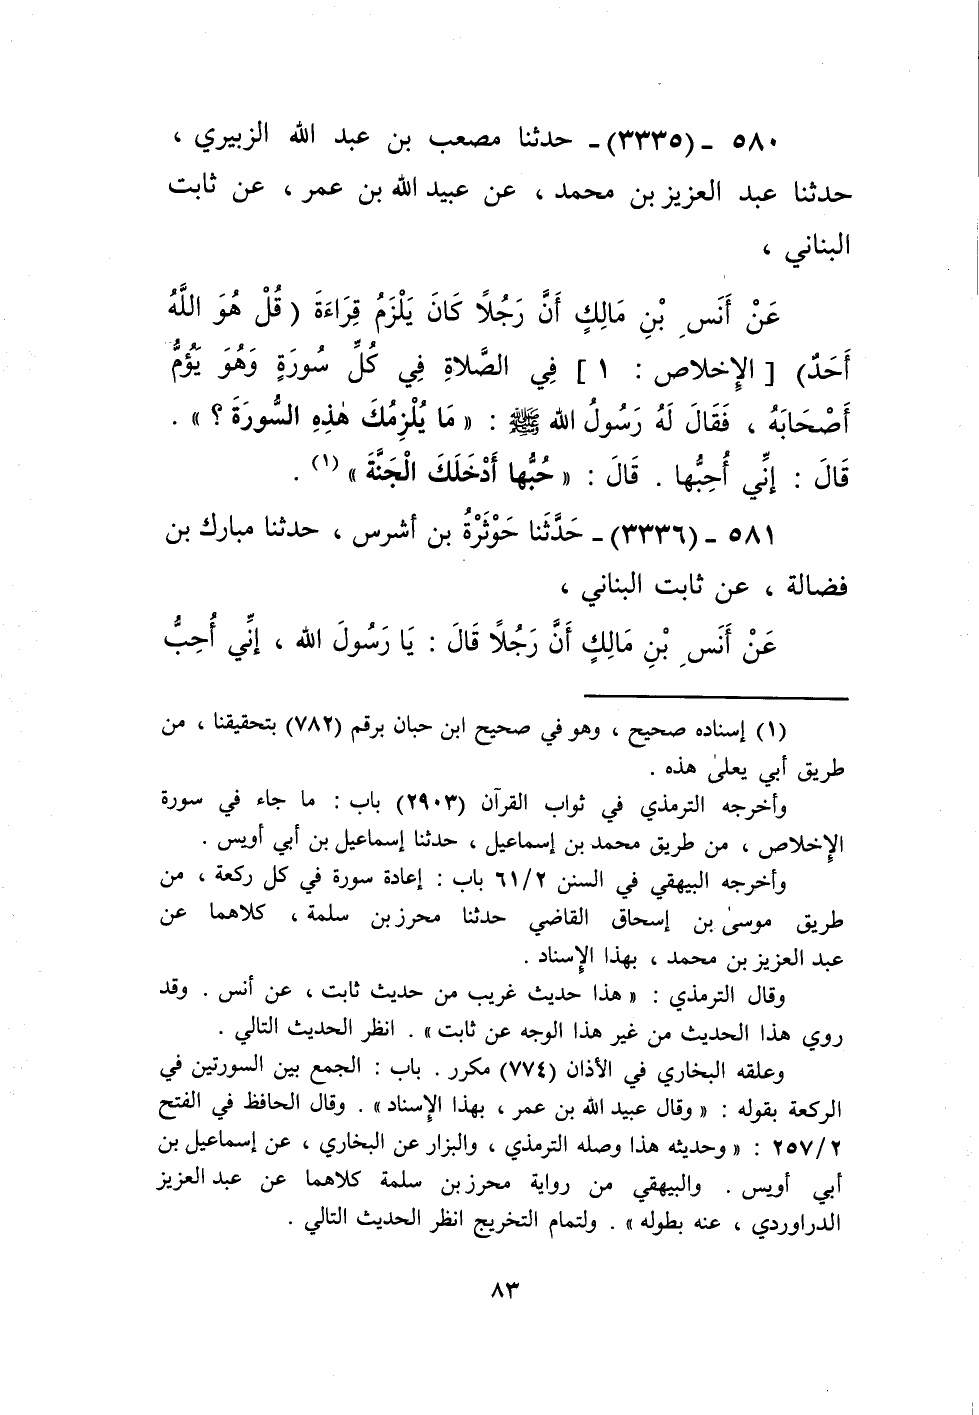 ٥٨٠ ـ (٣٣٣٥) ـ حدثنا مصعب بن عبد الله الزبيري ،
حدثنا عبد العزيز بن محمد ، عن عبيد الله بن عمر ، عن ثابت
البناني ،
عَنْ أَنَسِ بْنِ مَالِكٍ أَنَّ رَجُلًا كَانَ يَلْزَمُ قِرَاءَةَ ( قُلْ هُوَ اللَّهُ
أَحَدٌ) [ الإِخلاص : ١ ] فِي الصَّلَاةِ فِي كُلِّ سُورَةٍ وَهُوَ يَؤُمُّ
أَصْحَابَهُ ، فَقَالَ لَهُ رَسُولُ الله ﷺ : « مَا يُلْزِمُكَ هٰذِهِ السُّورَةَ ؟ » .
قَالَ : إِنِّي أُحِبُّها . قَالَ : « حُبُّها أَدْخَلَكَ الْجَنَّةَ » (١) .
٥٨١ ـ (٣٣٣٦) ـ حَدَّثَنا حَوْثَرْةُ بن أشرس ، حدثنا مبارك بن
فضالة ، عن ثابت البناني ،
عَنْ أَنَسِ بْنِ مَالِكٍ أَنَّ رَجُلًا قَالَ : يَا رَسُولَ الله ، إِنِّي أُحِبُّ
(١) إسناده صحيح ، وهو في صحيح ابن حبان برقم (٧٨٢) بتحقيقنا ، من
طريق أبي يعلىٰ هذه .
وأخرجه الترمذي في ثواب القرآن (٢٩٠٣) باب : ما جاء في سورة
الإِخلاص ، من طريق محمد بن إسماعيل ، حدثنا إسماعيل بن أبي أويس .
وأخرجه البيهقي في السنن ٦١/٢ باب : إعادة سورة في كل ركعة ، من
طريق موسىٰ بن إسحاق القاضي حدثنا محرز بن سلمة ، كلاهما عن
عبد العزيز بن محمد ، بهذا الإِسناد .
وقال الترمذي : « هذا حديث غريب من حديث ثابت ، عن أنس . وقد
روي هذا الحديث من غير هذا الوجه عن ثابت » . انظر الحديث التالي .
وعلقه البخاري في الأذان (٧٧٤) مكرر . باب : الجمع بين السورتين في
الركعة بقوله : « وقال عبيد الله بن عمر ، بهذا الإِسناد » . وقال الحافظ في الفتح
٢٥٧/٢ : « وحديثه هذا وصله الترمذي ، والبزار عن البخاري ، عن إسماعيل بن
أبي أويس . والبيهقي من رواية محرز بن سلمة كلاهما عن عبد العزيز
الدراوردي ، عنه بطوله » . ولتمام التخريج انظر الحديث التالي .
٨٣